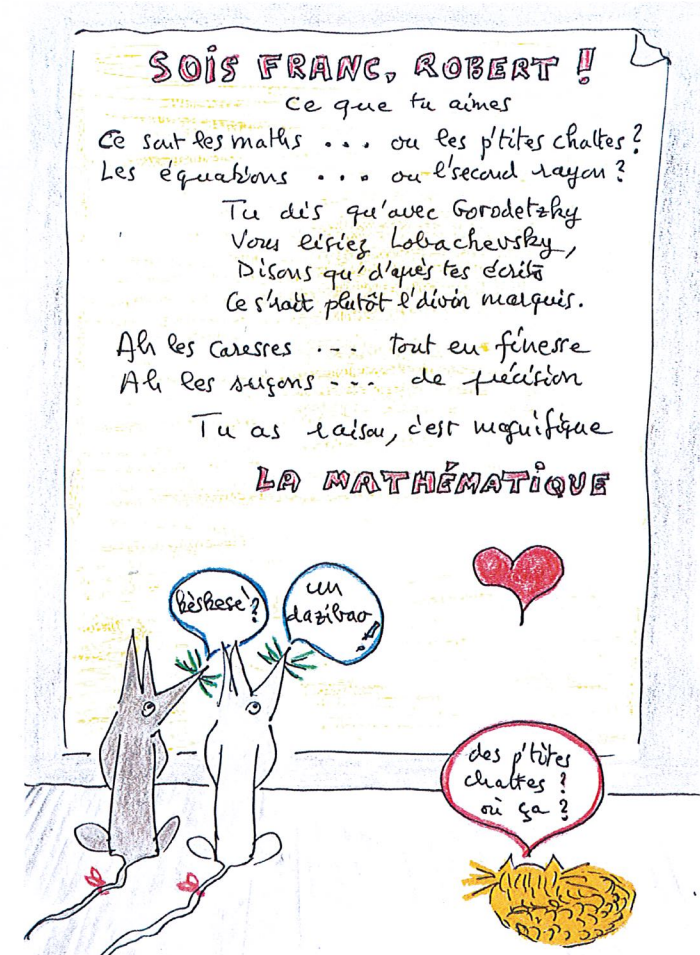 SOIS FRANC, ROBERT !
Ce que tu aimes
Ce sont les maths ... ou les p'tites chattes ?
Les équations ... ou l'second rayon ?
Tu dis qu'avec Gorodetzky
Vous lisiez Lobachevsky,
Disons qu'd'après tes écrits
Ce s'rait plutôt l'divin marquis.
Ah les caresses --- tout en finesse
Ah les suçons --- de précision
Tu as raison, c'est magnifique
LA MATHÉMATIQUE
kèskesé ?
un
dazibao !
des p'tites
chattes ?
où ça ?